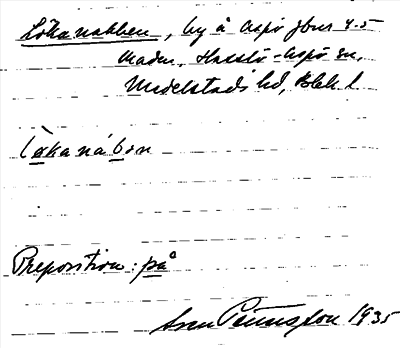 Lökanabben, by å Aspö jbnr 4-5
Maden, Hasslö-Aspö sn,
Medelstads hd, Blek. l.
lø̀kanábən
Preposition: på
Sven Benson 1935